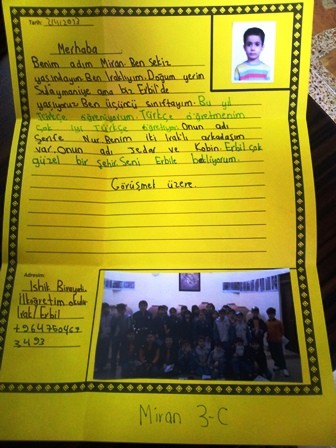 Tarih:
Merhaba
Benim adım Miran Ben sekiz
yaşındayım Ben Iraklıyım. Doğum yerim
Süleymaniye ama biz Erbil'de
yaşıyoruz Ben üçüncü sınıftayım. Bu yıl
Türkçe öğreniyorum. Türkçe öğretmenim
çok iyi Türkçe öğretiyor. Onun adı
Şerife Nur. Benim iki Iraklı arkadaşım
var. Onun adı Jedar ve Kobin. Erbil çok
güzel bir şehir. Seni Erbile bekliyorum.
Görüşmek üzere
Adresim:
Ishik
İlköğretim okulu
Irak/Erbil
+964750469
3493
Miran 3-C